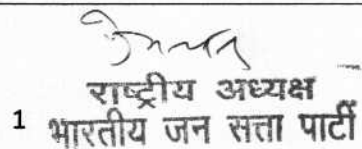 राष्ट्रीय अध्यक्ष
1 भारतीय जन सत्ता पार्टी